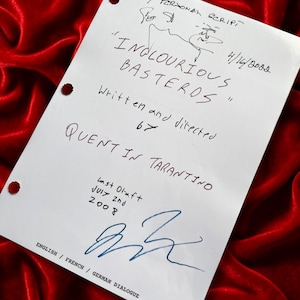 PERSONAL SCRIPT
4/16/2022
"INGLOURIOUS
BASTERDS"
Written and directed
by
QUENTIN TARANTINO
Last Draft
JULY 2nd
2008
ENGLISH / FRENCH / GERMAN DIALOGUE